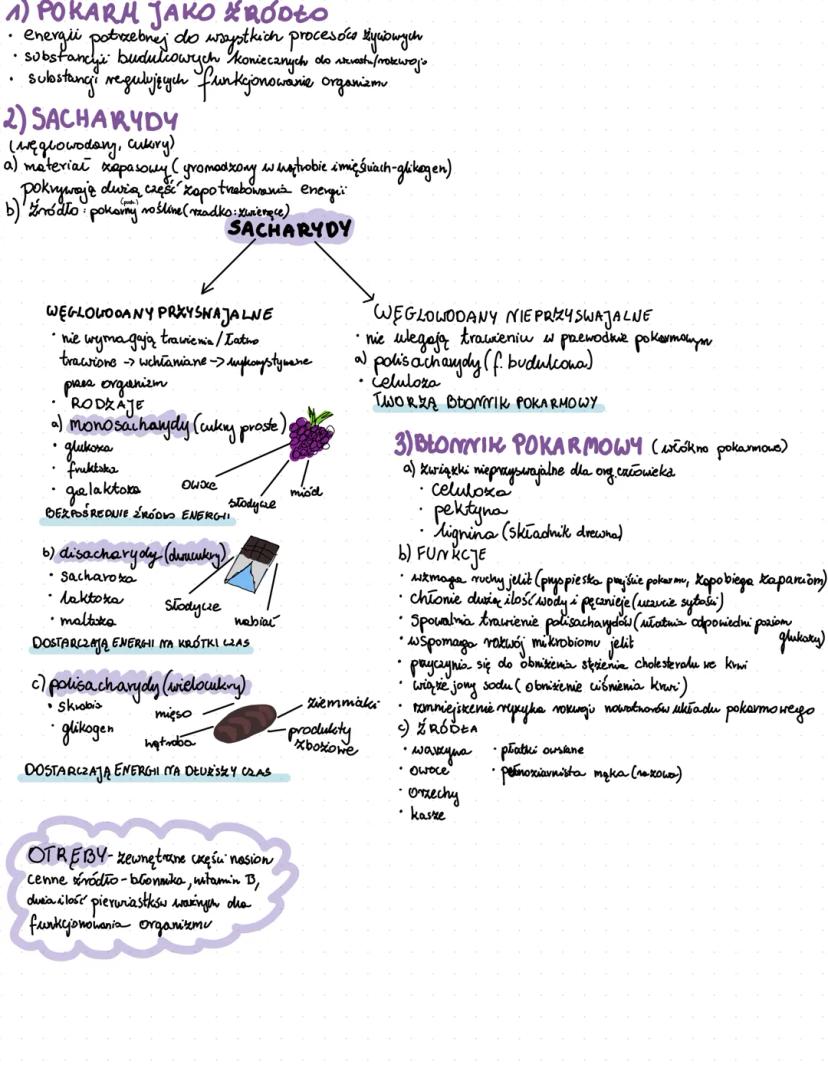 1) POKARM JAKO ŹRÓDŁO
· energii potrzebnej do wszystkich procesów życiowych
· substancji budulcowych koniecznych do wzrostu/rozwoju
· substancji regulujących funkcjonowanie organizmu
2) SACHARYDY
(węglowodany, cukry)
a) materiał zapasowy (gromadzony w wątrobie i mięśniach-glikogen)
pokrywają dużą część zapotrzebowania energii
b) źródło: pokarmy roślinne (rzadko: zwierzęce)
SACHARYDY
WĘGLOWODANY PRZYSWAJALNE
· nie wymagają trawienia/łatwo
trawione -> wchłaniane -> wykorzystywane
przez organizm
· RODZAJE
a) monosacharydy (cukry proste)
· glukoza
· fruktoza
· galaktoza
owoce
słodycze
miód
BEZPOŚREDNIE ŹRÓDŁO ENERGII
b) disacharydy (dwucukry)
· sacharoza
· laktoza
· maltoza
słodycze
nabiał
DOSTARCZAJĄ ENERGII NA KRÓTKI CZAS
c) polisacharydy (wielocukry)
· skrobia
· glikogen
mięso
wątroba
ziemniaki
produkty
zbożowe
DOSTARCZAJĄ ENERGII NA DŁUŻSZY CZAS
OTRĘBY- zewnętrzne części nasion
cenne źródło - błonnika, witamin B,
duża ilość pierwiastków ważnych dla
funkcjonowania organizmu
WĘGLOWODANY NIEPRZYSWAJALNE
· nie ulegają trawieniu w przewodzie pokarmowym
a) polisacharydy (f. budulcowa)
· celuloza
TWORZĄ BŁONNIK POKARMOWY
3) BŁONNIK POKARMOWY (włókno pokarmowe)
a) związki nieprzyswajalne dla org. człowieka
· celuloza
· pektyna
· lignina (składnik drewna)
b) FUNKCJE
· wzmaga ruchy jelit (przyspiesza przejście pokarmu, zapobiega zaparciom)
· chłonie dużą ilość wody i pęcznieje (uczucie sytości)
· spowalnia trawienie polisacharydów (ułatwia odpowiedni poziom
glukozy)
· wspomaga rozwój mikrobiomu jelit
· przyczynia się do obniżenia stężenia cholesterolu we krwi
· wiąże jony sodu (obniżenie ciśnienia krwi)
· zmniejszenie ryzyka rozwoju nowotworów układu pokarmowego
c) ŹRÓDŁA
· warzywa · płatki owsiane
· owoce · pełnoziarnista mąka (razowa)
· orzechy
· kasze